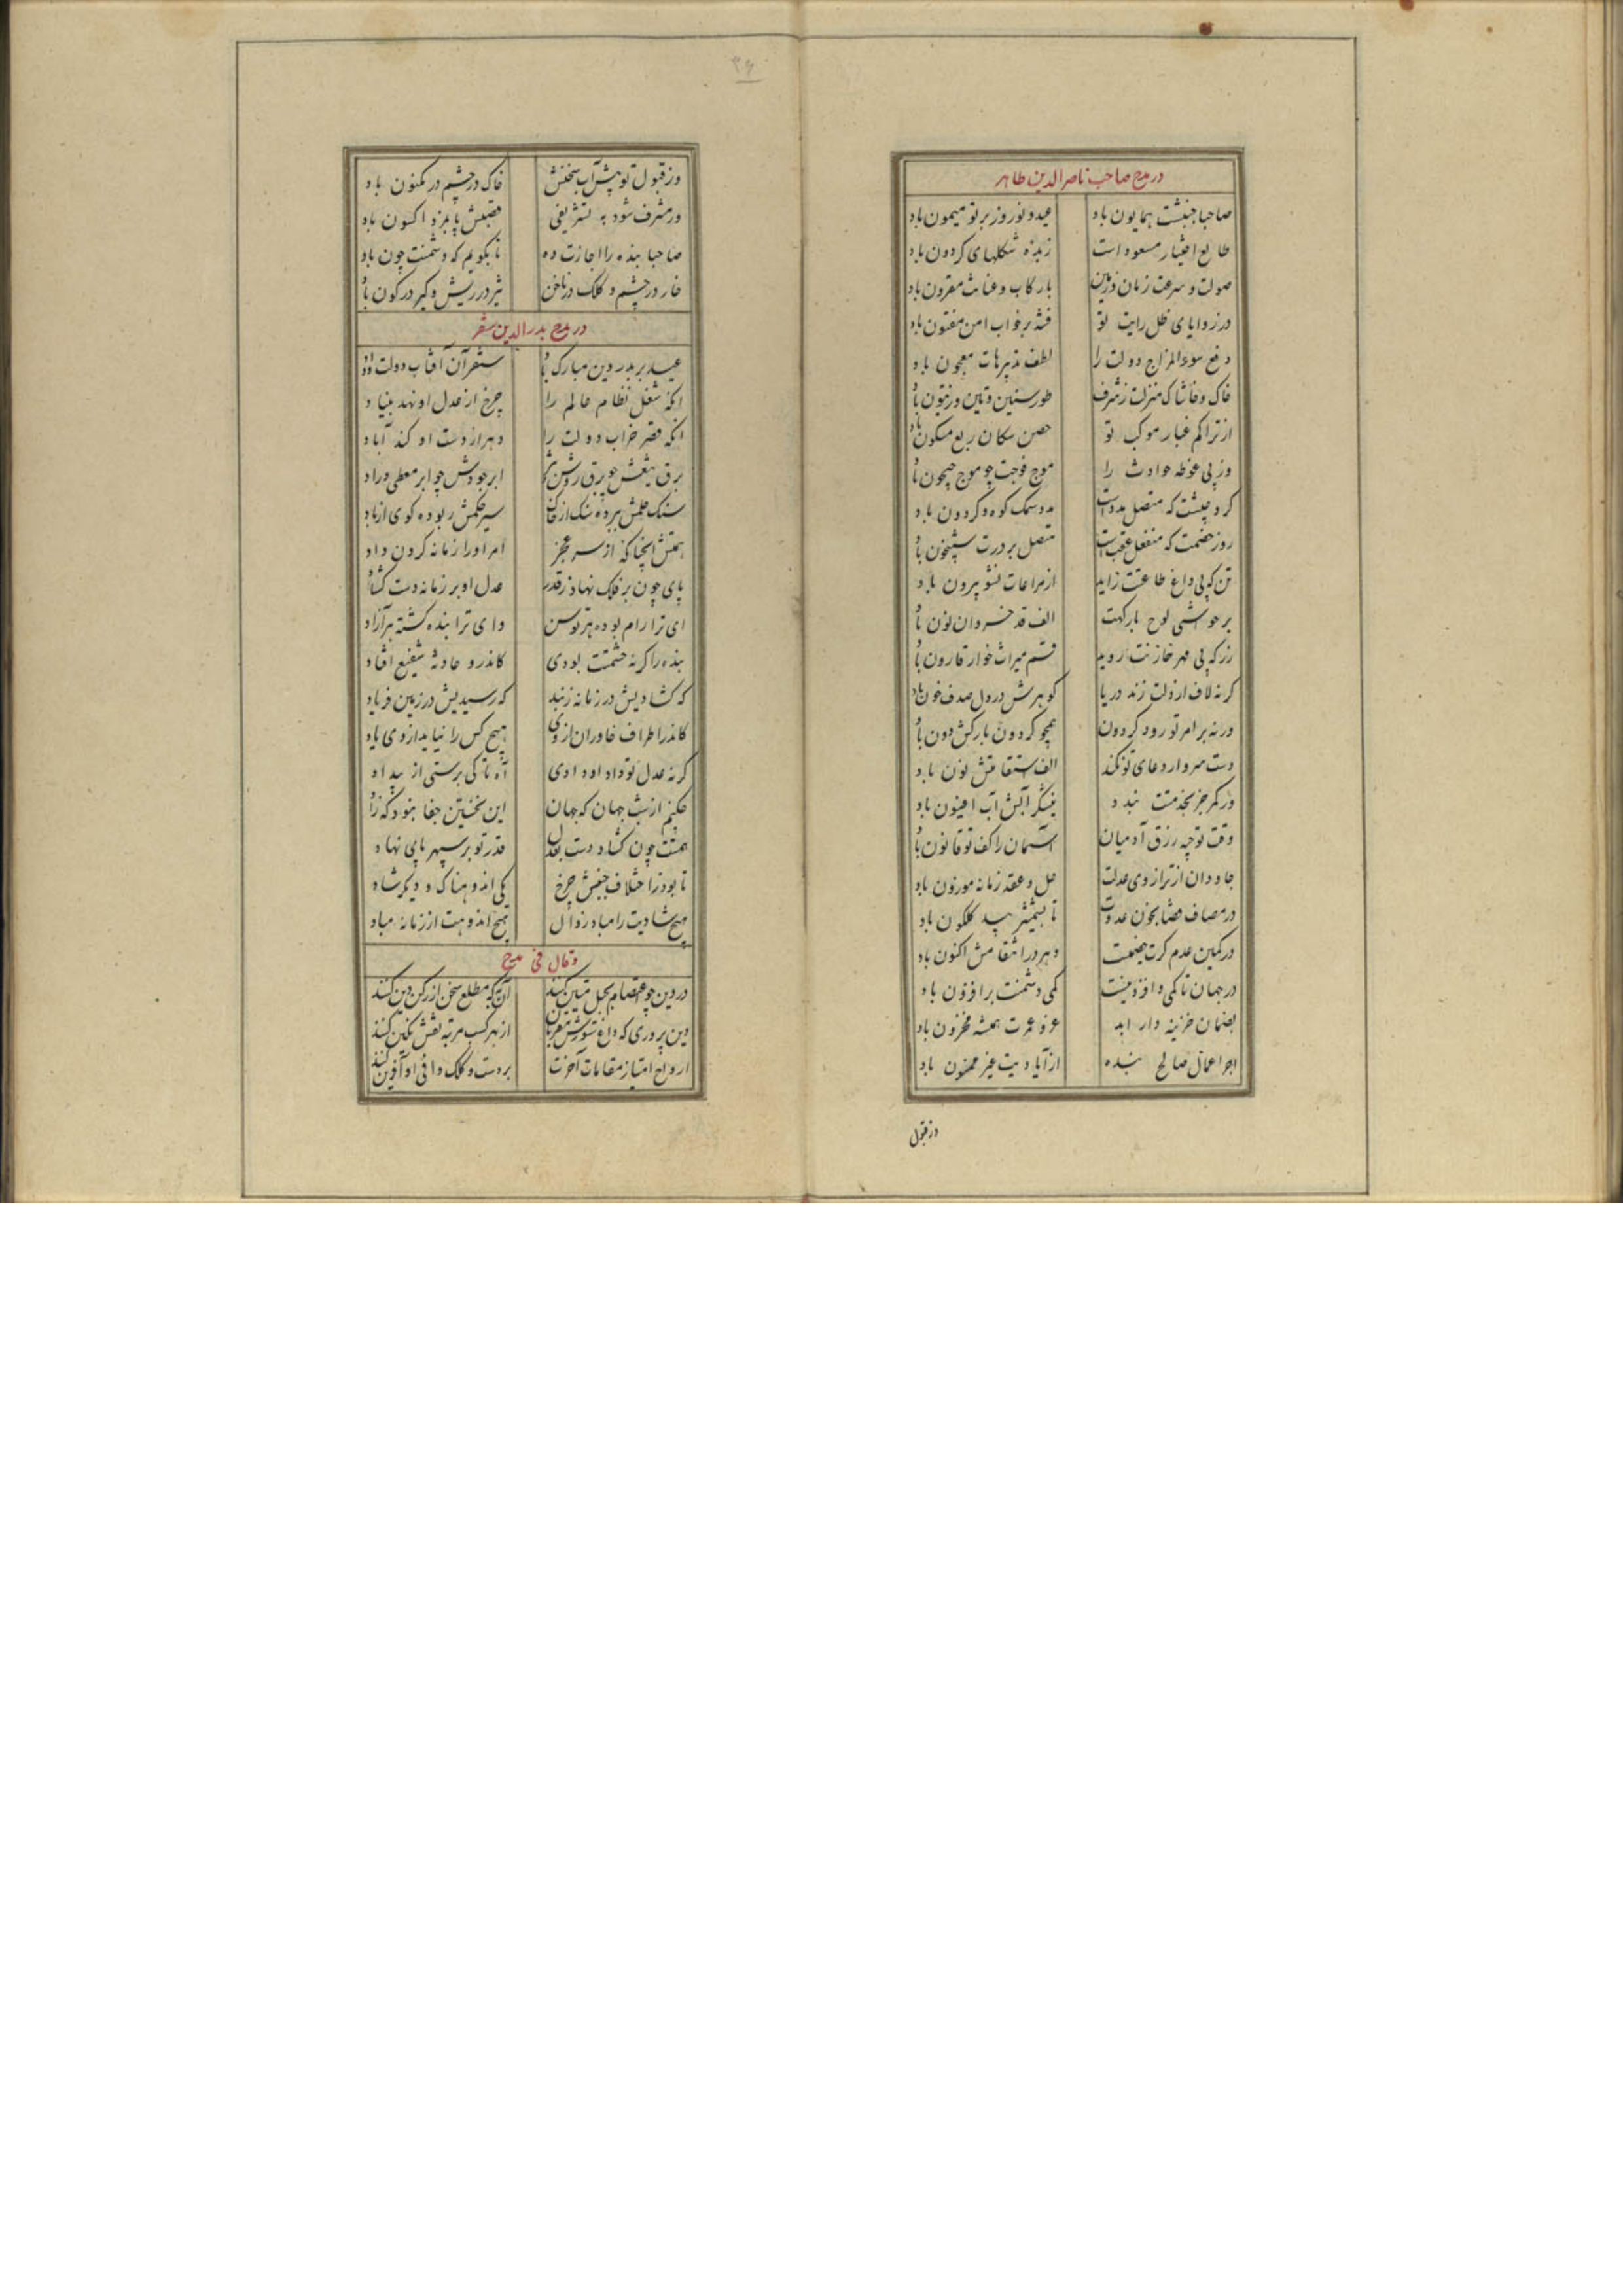 در مدح صاحب ناصر الدین طاهر
صاحبا جنبشت همایون باد عید و نوروز بر تو میمون باد
طالع اختیار مسعود است زبده شکلهای کردون باد
صولت و سرعت زمان و زمین با رکاب و عنانت مقرون باد
در زوایای ظل رایت تو فتنه بر خواب امن مفتون باد
دفع سوء المزاج دولت را لطف تدبیرهات معجون باد
خاک و خاشاک منزلت ز شرف طور سنین و تین و زیتون باد
از تراکم غبار موکب تو حصن سکان ربع مسکون باد
وز پی غوطه حوادث را موج فوجت چو موج جیحون باد
کرد جیشت که متصل مدد است مدد سمک کوه و کردون باد
روز خصمت که منفصل عقب است متصل بر درت شبیخون باد
تن که بی داغ طاعتت زاید از مراعات نشو بیرون باد
بر حواشی لوح بارکهت الف قد خسروان نون باد
زر که بی مهر خازنت روید قسم میراث خوار قارون باد
کرنه لاف از دلت زند دریا کوهرش در دل صدف خون باد
ورنه بر امر تو رود کردون همچو کردون بارکش دون باد
دست سرو ار دعای تو نکند الف استقامتش نون باد
ور کمر جز بخدمتت بندد نیشکر آبش آب افیون باد
وقت توجیه رزق آدمیان آسمان را کف تو قانون باد
جاودان از ترازوی عدلت حل و عقد زمانه موزون باد
در مصاف قضا بخون عدوت تا بشمشیر بید کلکون باد
در کمین عدم کرت خصمیست دهر در انتقامش اکنون باد
در جهان تا کمی و افزونیست کمی دشمنت بر افزون باد
بضمان خزینه دار ابد عز و عمرت همیشه مخزون باد
اجر اعمال صالح بنده از ایادیت غیر ممنون باد
وز قبول
۳۶
وز قبول تو پیش آب سخنش خاک در چشم در مکنون باد
ور مشرف شود به تشریفی قصبش پایمزد اکسون باد
صاحبا بنده را اجازت ده تا بکویم که دشمنت چون باد
خار در چشم و کلک در ناخن تیز در ریش و کیر در کون باد
در مدح بدرالدین سنقر
عید بر بدر دین مبارک باد سنقر آن آفتاب دولت و داد
آنکه شغل نظام عالم را چرخ از عدل او نهد بنیاد
آنکه قصر خراب دولت را دهر از دست او کند آباد
برق تیغش چو برق روشن و تیز ابر جودش چو ابر معطی و راد
سنک حلمش ببرده سنک از خاک سیر حکمش ربوده کوی از باد
همتش آنجا که از سر عجز امر او را زمانه کردن داد
پای چون بر فلک نهاد ز قدر عدل او بر زمانه دست کشاد
ای ترا رام بوده هر توسن وای ترا بنده کشته هر آزاد
بنده را کرنه حشمتت بودی کاندرو حادثه شفیع افتاد
که کشادیش در زمانه ز بند که رسیدیش در زمین فریاد
کاندر اطراف خاوران از وی هیچ کس را نیاید از وی یاد
کرنه عدل تو داد او دادی آه تا کی برستی از بیداد
چکنم از شب جهان که جهان این نخستین جفا نبود که زاد
همتت چون کشاد دست بعدل قدر تو بر سپهر پای نهاد
تا بود ز اختلاف جنبش چرخ یکی اندوهناک و دیکر شاد
هیچ شادیت را مباد زوال هیچ اندوهت از زمانه مباد
وقال فی مدح
در دین چو اعتصام بحبل متین کنند آن به که مطلع سخن از رکن دین کنند
دین پروری که داغ ستورش مقربان از بهر کسب مرتبه نقش نکین کنند
ارواح امتیاز مقامات آخرت بر دست و کلک وافی او آفرین کنند